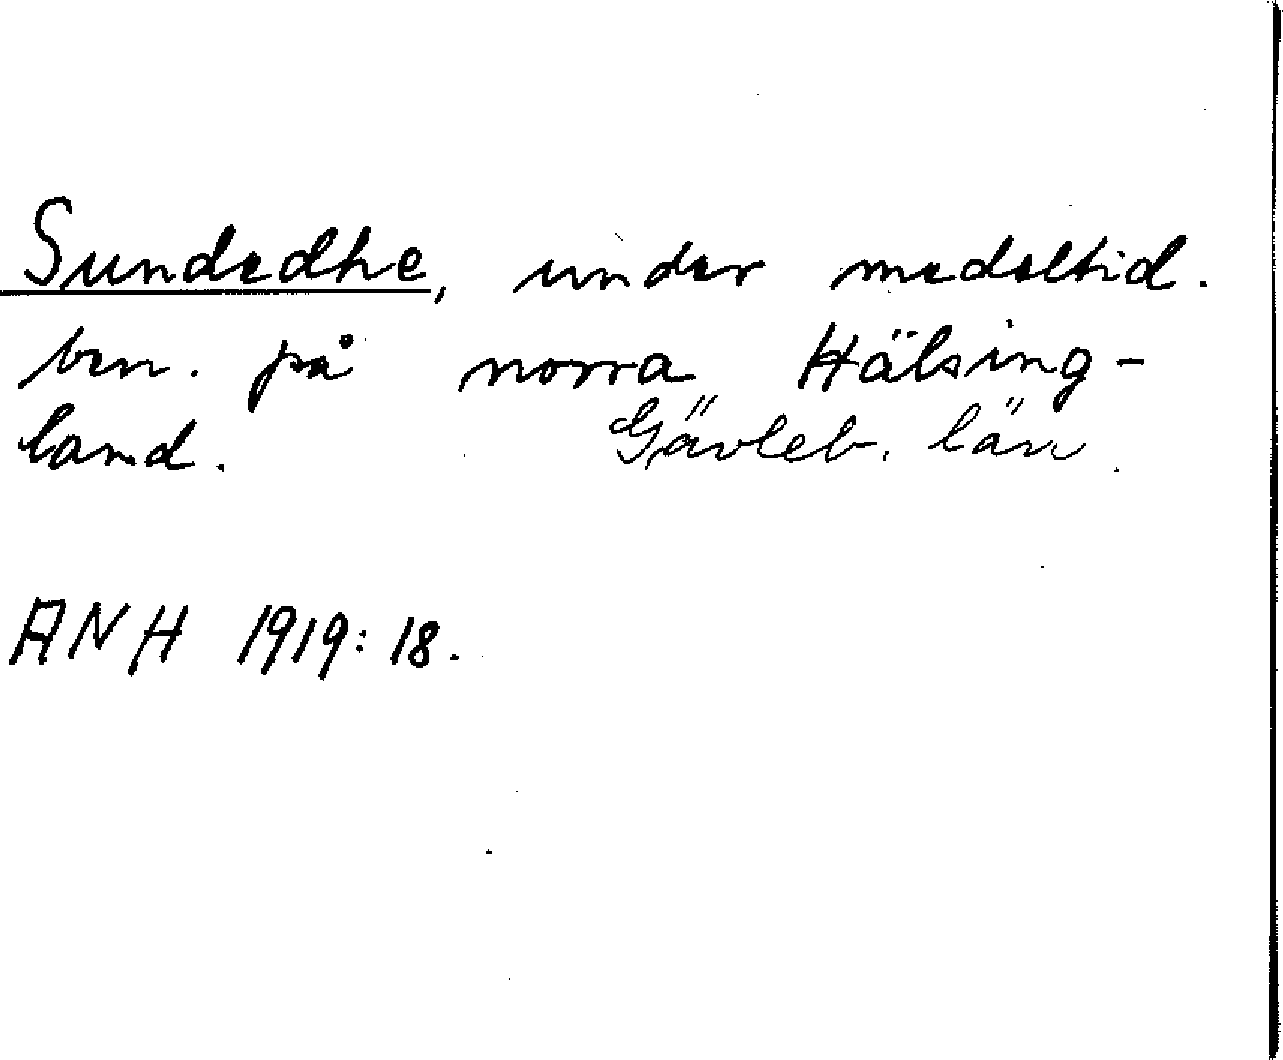 Sundedhe, under medeltid.
ben. på norra Hälsing-
land. Gävleb. län
ANH 1919:18.